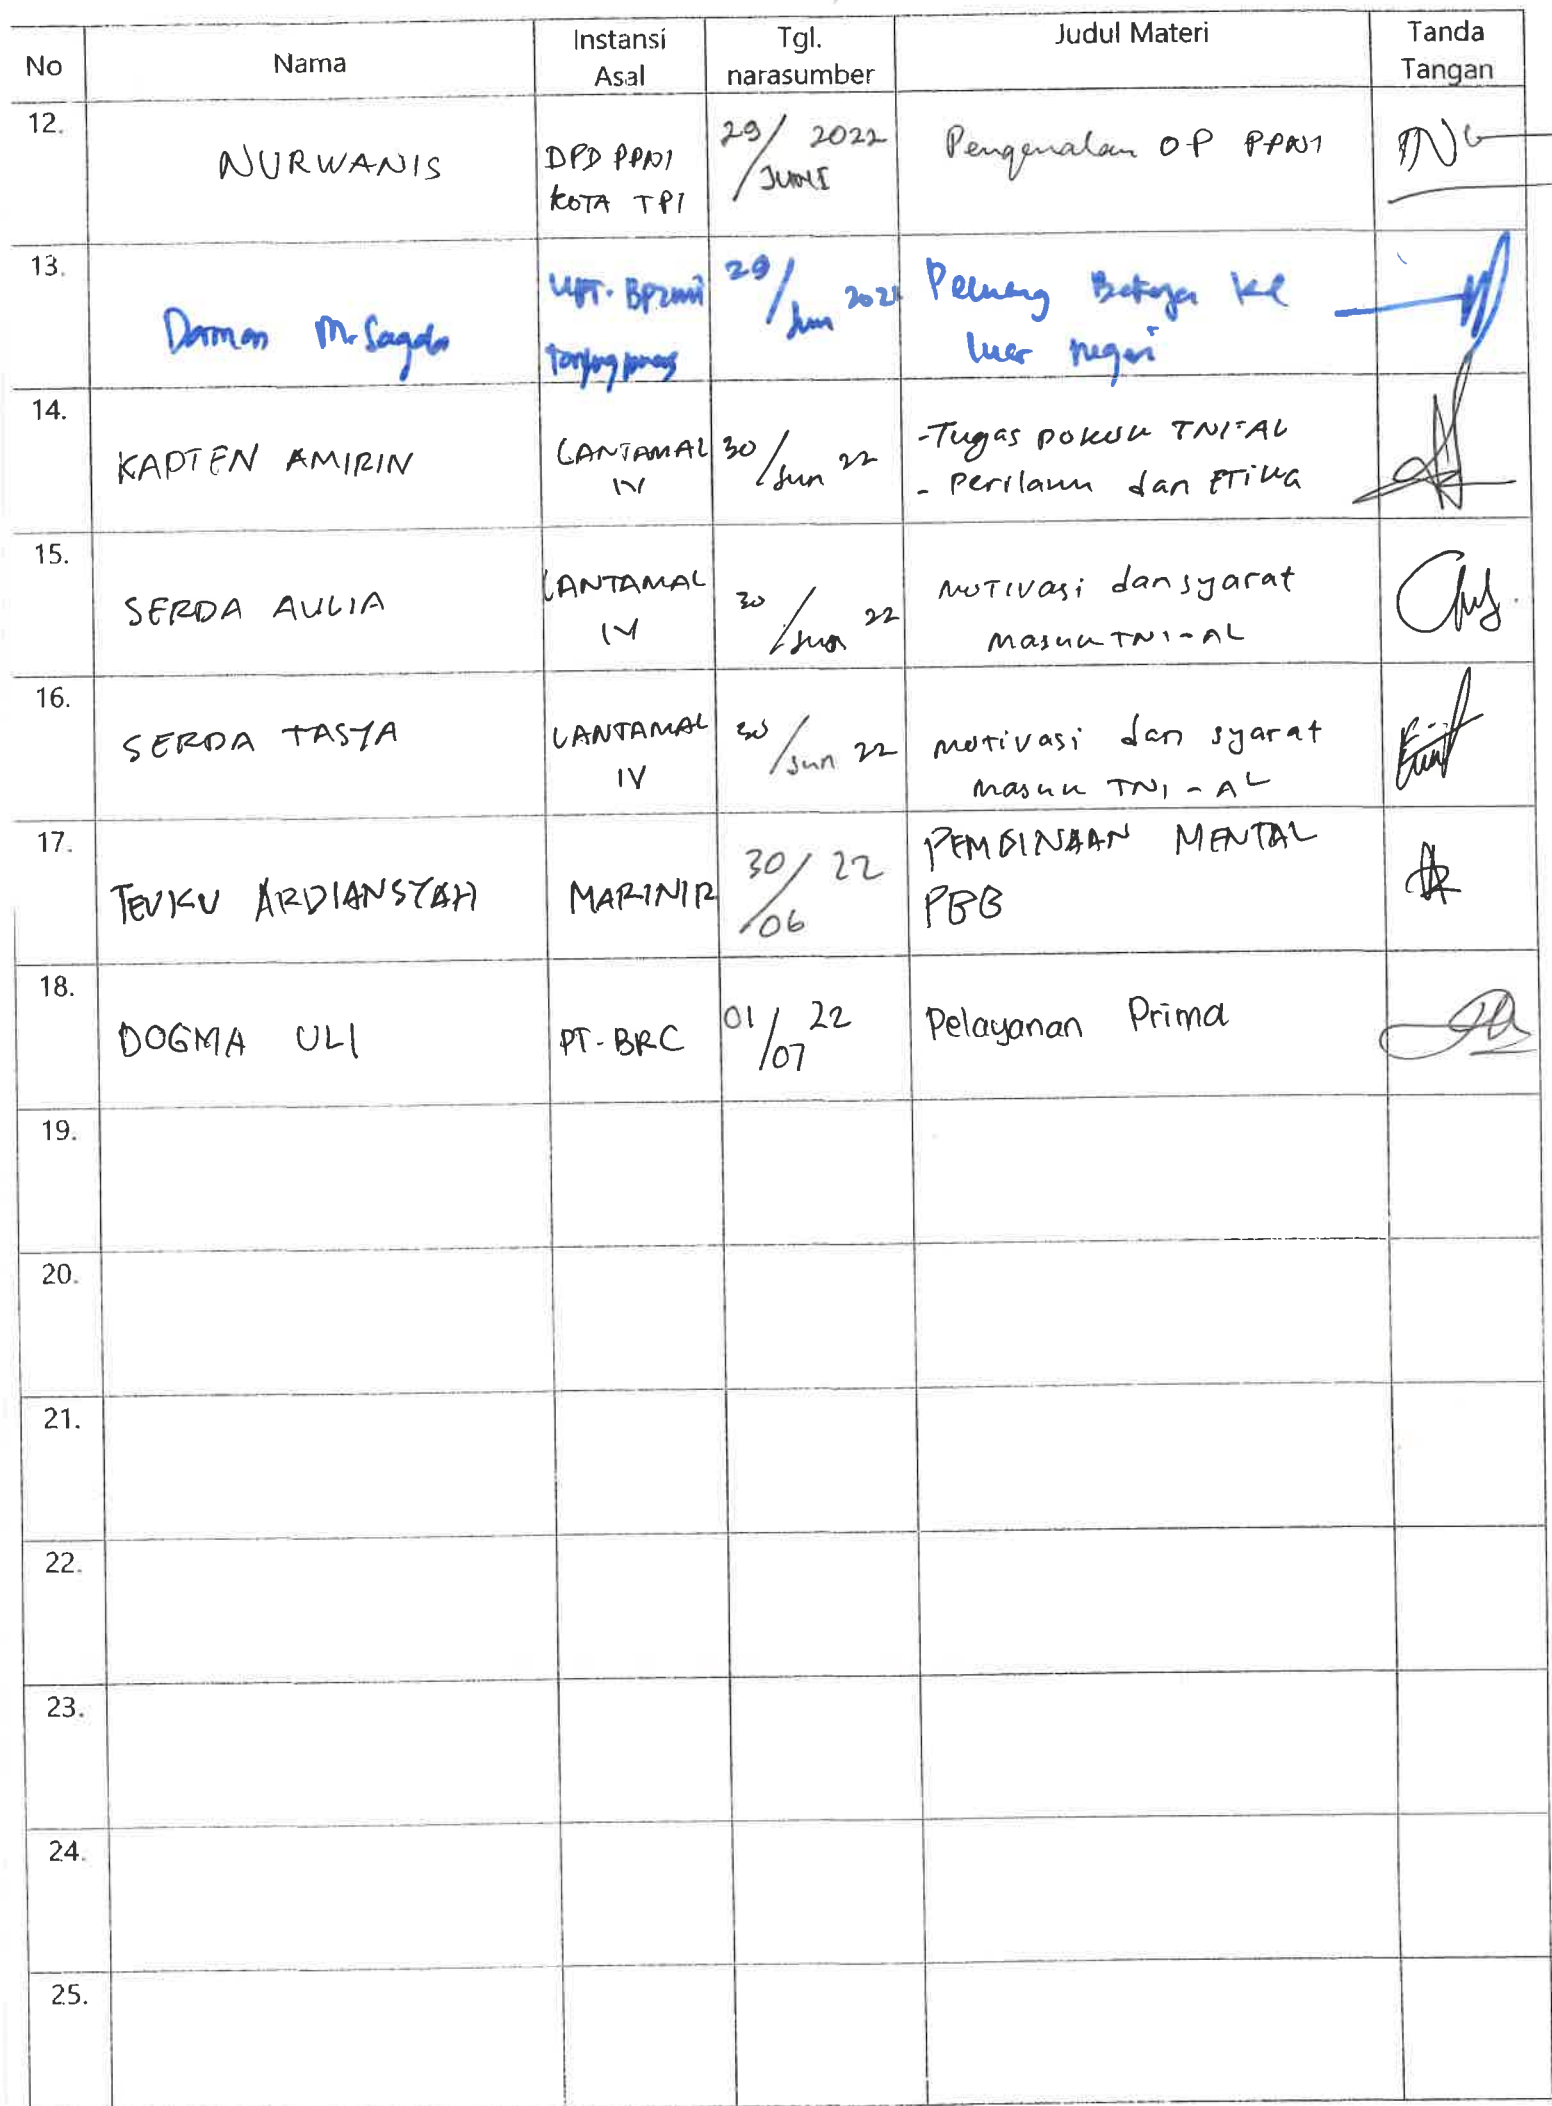 No Nama Instansi Asal Tgl. narasumber Judul Materi Tanda Tangan
12. NURWANIS DPD PPNI KOTA TPI 29/JUNI 2022 Pengenalan OP PPNI
13. Darman M. Sagala UPT. BP2MI Tanjung pinang 29/Jun 2022 Peluang Bekerja ke luar negeri
14. KAPTEN AMIRIN LANTAMAL IV 30/Jun 22 - Tugas pokok TNI-AL
- Perilaku dan Etika
15. SERDA AULIA LANTAMAL IV 30/Jun 22 Motivasi dan syarat
Masuk TNI-AL
16. SERDA TASYA LANTAMAL IV 30/Jun 22 Motivasi dan syarat
Masuk TNI-AL
17. TEUKU ARDIANSYAH MARINIR 30/06 22 PEMBINAAN MENTAL
PBB
18. DOGMA ULI PT-BRC 01/07 22 Pelayanan Prima
19.
20.
21.
22.
23.
24.
25.